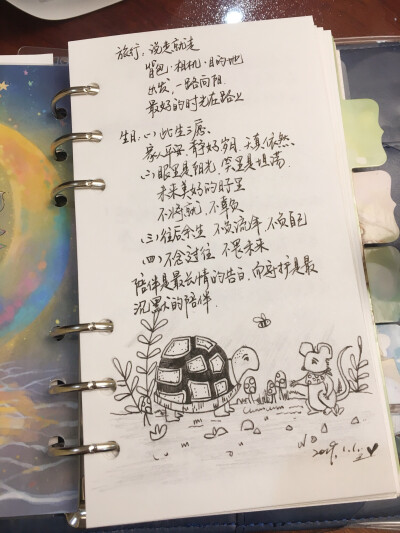 旅行：说走就走
背包·相机·目的地
出发，一路向阳.
最好的时光在路上
生日：(一)此生三愿.
家人平安.静好岁月.天真依然.
(二)眼里是阳光,笑里是坦荡.
未来美好的日子里
不将就,不辜负
(三)往后余生 不负流年 不负自己
(四)不念过往 不畏未来
陪伴是最长情的告白.而守护是最
沉默的陪伴.
2019.1.1.